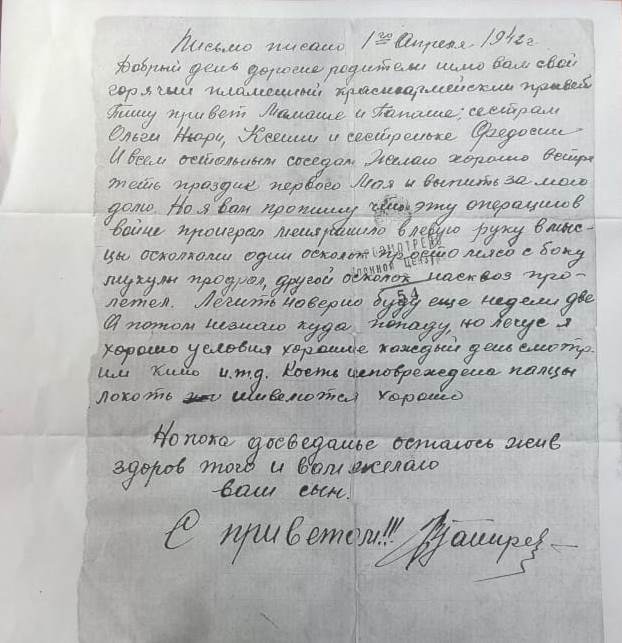 Письмо писано 1го Апреля 1942 г
Добрый день дорогие родители шлю вам свой
горячий пламенный красноармейский привет
Пишу привет Мамаше и Папаше, сестрам
Ольги Нюри, Ксении и сестреньке Федосии
И всем остальным соседам желаю хорошо встре
теть праздик первого Мая и выпить за мою
долю. Но я вам пропишу что эту операцию в
войне проиграл меня ранило в левую руку в мыс-
цы осколками один осколок просто мясо с боку
мускулы продрал, другой осколок насквоз про-
летел. Лечить наверно буду еще недели две
А потом незнаю куда попаду, но лечус я
хорошо условия хорошие каждый день смотр-
им Кино и.т.д. Кость неповреждена палцы
локоть шивелютса хорошо
ПРОСМОТРЕНО
ВОЕННОЙ ЦЕНЗУРОЙ
54
Но пока досведанье осталось жив
здоров того и вам желаю
ваш сын.
С приветом!!!